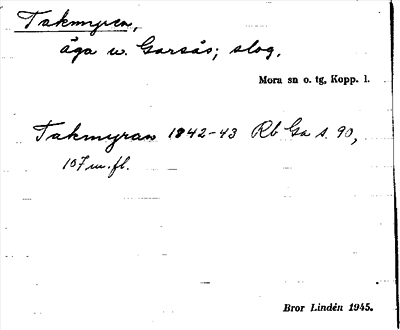 Takmyren,
äga w. Garsås; slog.
Mora sn o. tg, Kopp. l.
Takmyran 1842-43 Rb Ga s. 90,
107 m. fl.
Bror Lindén 1945.